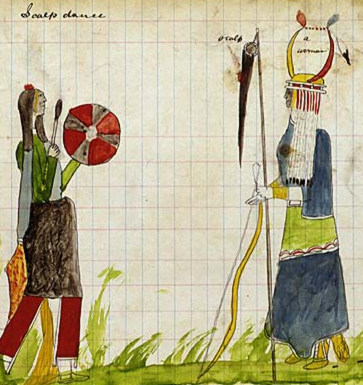 Scalp dance
scalp
a
woman